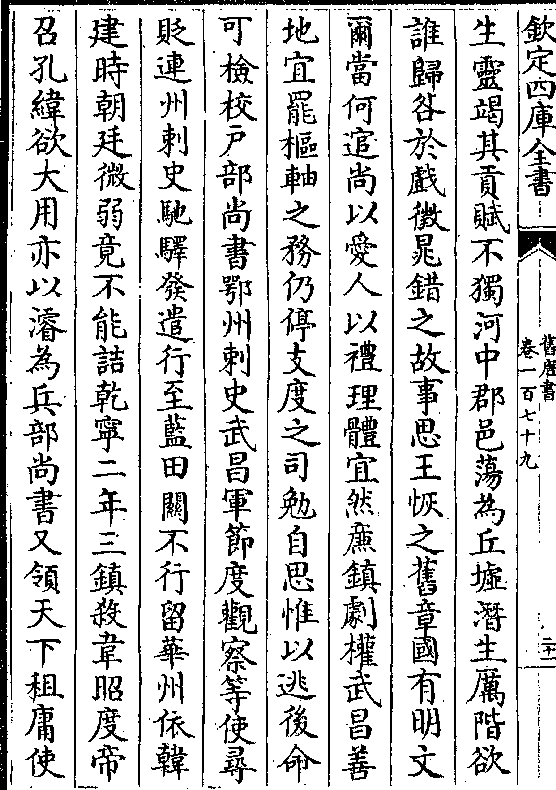 欽定四庫全書
舊唐書
卷一百七十九
二十二
生靈竭其貢賦不獨河中郡邑蕩為丘墟潛生厲階欲
誰歸咎於戲徵晁錯之故事思王恢之舊章國有明文
爾當何逭尚以愛人以禮理體宜然庶鎮劇權武昌善
地宜罷樞軸之務仍停支度之司勉自思惟以逃後命
可檢校户部尚書鄂州刺史武昌軍節度觀察等使尋
貶連州刺史馳驛發遣行至藍田關不行留華州依韓
建時朝廷微弱竟不能詰乾寧二年三鎮殺韋昭度帝
召孔緯欲大用亦以濬為兵部尚書又領天下租庸使